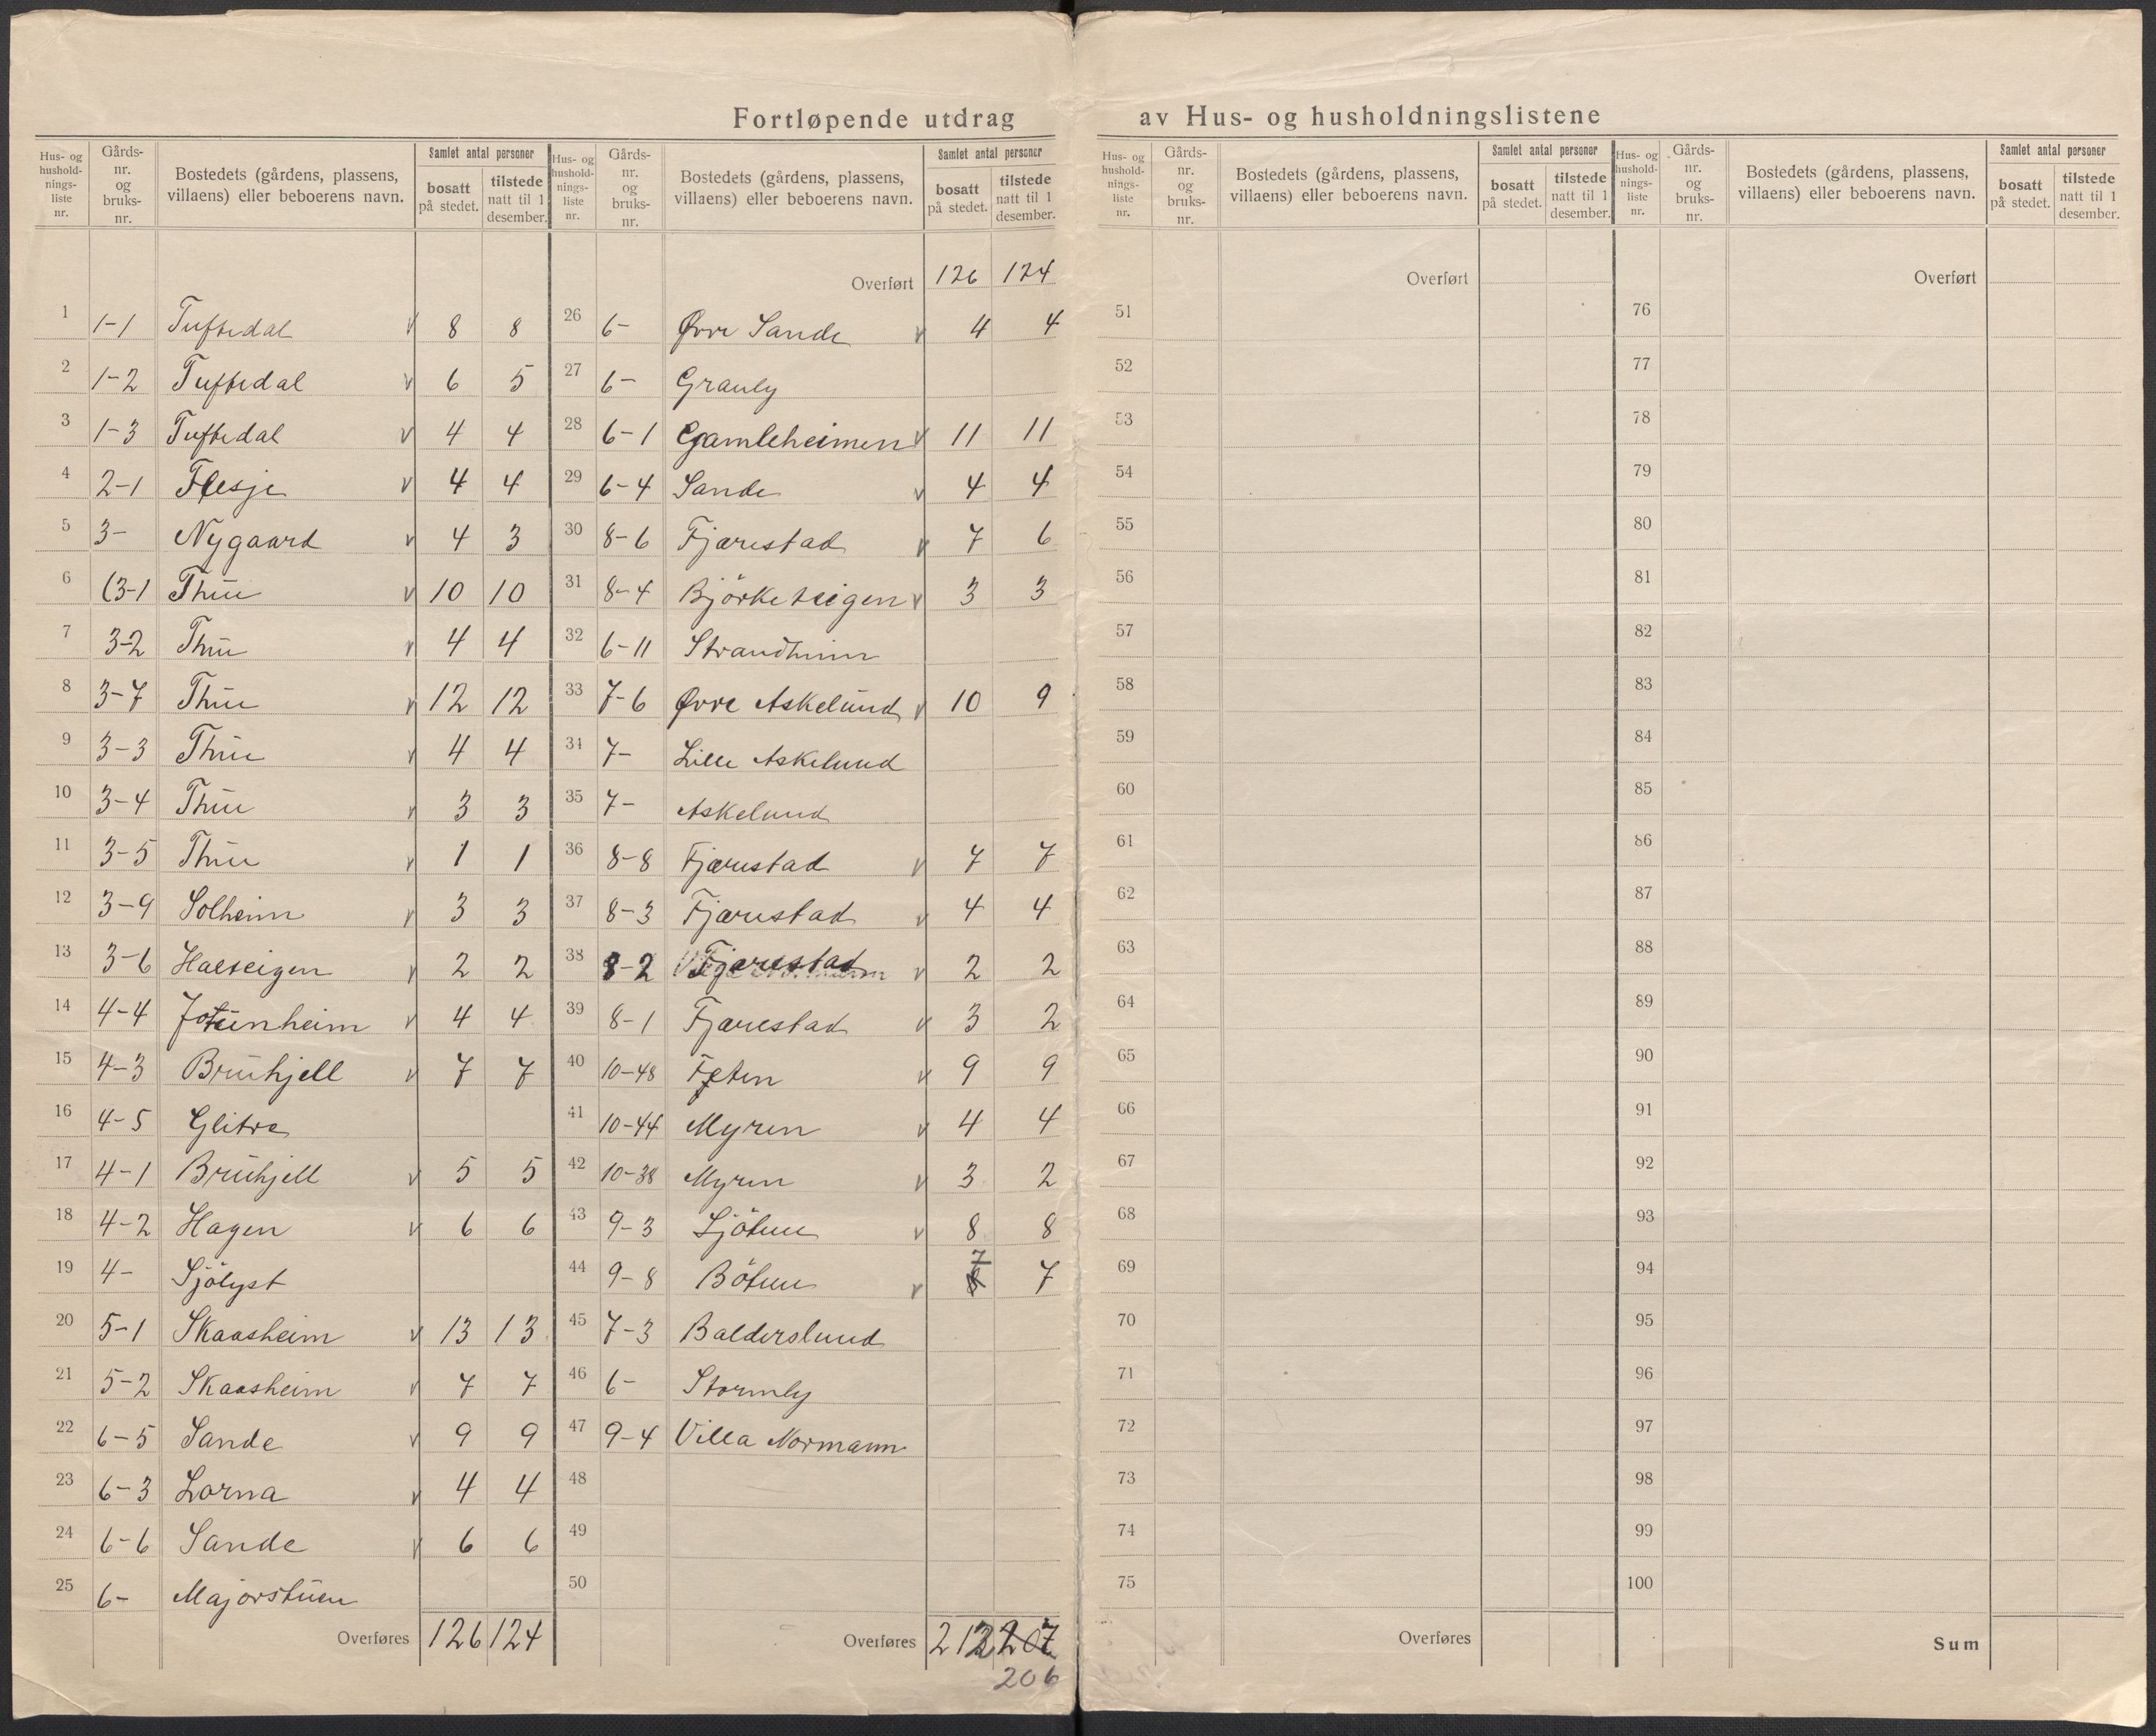 Fortløpende utdrag av Hus- og husholdningslistene
Hus- og hushold- nings- liste nr. | Gårds- nr. og bruks- nr. | Bostedets (gårdens, plassens, villaens) eller beboerens navn. | Samlet antal personer | bosatt på stedet. | tilstede natt til 1 desember.
1 1-1 Tuftedal v 8 8
2 1-2 Tuftedal v 6 5
3 1-3 Tuftedal v 4 4
4 2-1 Flesje v 4 4
5 3- Nygaard v 4 3
6 (3-1 Thue v 10 10
7 3-2 Thue v 4 4
8 3-7 Thue v 12 12
9 3-3 Thue v 4 4
10 3-4 Thue v 3 3
11 3-5 Thue v 1 1
12 3-9 Solheim v 3 3
13 3-6 Halteigen v 2 2
14 4-4 Jotunheim v 4 4
15 4-3 Bruhjell v 7 7
16 4-5 Glitre
17 4-1 Bruhjell v 5 5
18 4-2 Hagen v 6 6
19 4- Sjölyst
20 5-1 Skaasheim v 13 13
21 5-2 Skaasheim v 7 7
22 6-5 Sande v 9 9
23 6-3 Lorna v 4 4
24 6-6 Sande v 6 6
25 6- Majorstuen
Overføres 126 124
Hus- og hushold- nings- liste nr. | Gårds- nr. og bruks- nr. | Bostedets (gårdens, plassens, villaens) eller beboerens navn. | Samlet antal personer | bosatt på stedet. | tilstede natt til 1 desember.
Overført 126 124
26 6- Øvre Sande v 4 4
27 6- Granly
28 6-1 Gamleheimen v 11 11
29 6-4 Sande v 4 4
30 8-6 Fjærestad v 7 6
31 8-4 Björketeigen v 3 3
32 6-11 Strandheim
33 7-6 Øvre Askelund v 10 9
34 7- Lille Askelund
35 7- Askelund
36 8-8 Fjærestad v 7 7
37 8-3 Fjærestad v 4 4
38 8-2 Fjærestad v 2 2
39 8-1 Fjærestad v 3 2
40 10-48 Feten v 9 9
41 10-44 Myren v 4 4
42 10-38 Myren v 3 2
43 9-3 Ljötun v 8 8
44 9-8 Bötun v 8 7 7
45 7-3 Balderslund
46 6- Stormly
47 9-4 Villa Normann
48
49
50
Overføres 212 207
206
Hus- og hushold- nings- liste nr. | Gårds- nr. og bruks- nr. | Bostedets (gårdens, plassens, villaens) eller beboerens navn. | Samlet antal personer | bosatt på stedet. | tilstede natt til 1 desember.
Overført
51
52
53
54
55
56
57
58
59
60
61
62
63
64
65
66
67
68
69
70
71
72
73
74
75
Overføres
Hus- og hushold- nings- liste nr. | Gårds- nr. og bruks- nr. | Bostedets (gårdens, plassens, villaens) eller beboerens navn. | Samlet antal personer | bosatt på stedet. | tilstede natt til 1 desember.
Overført
76
77
78
79
80
81
82
83
84
85
86
87
88
89
90
91
92
93
94
95
96
97
98
99
100
Sum